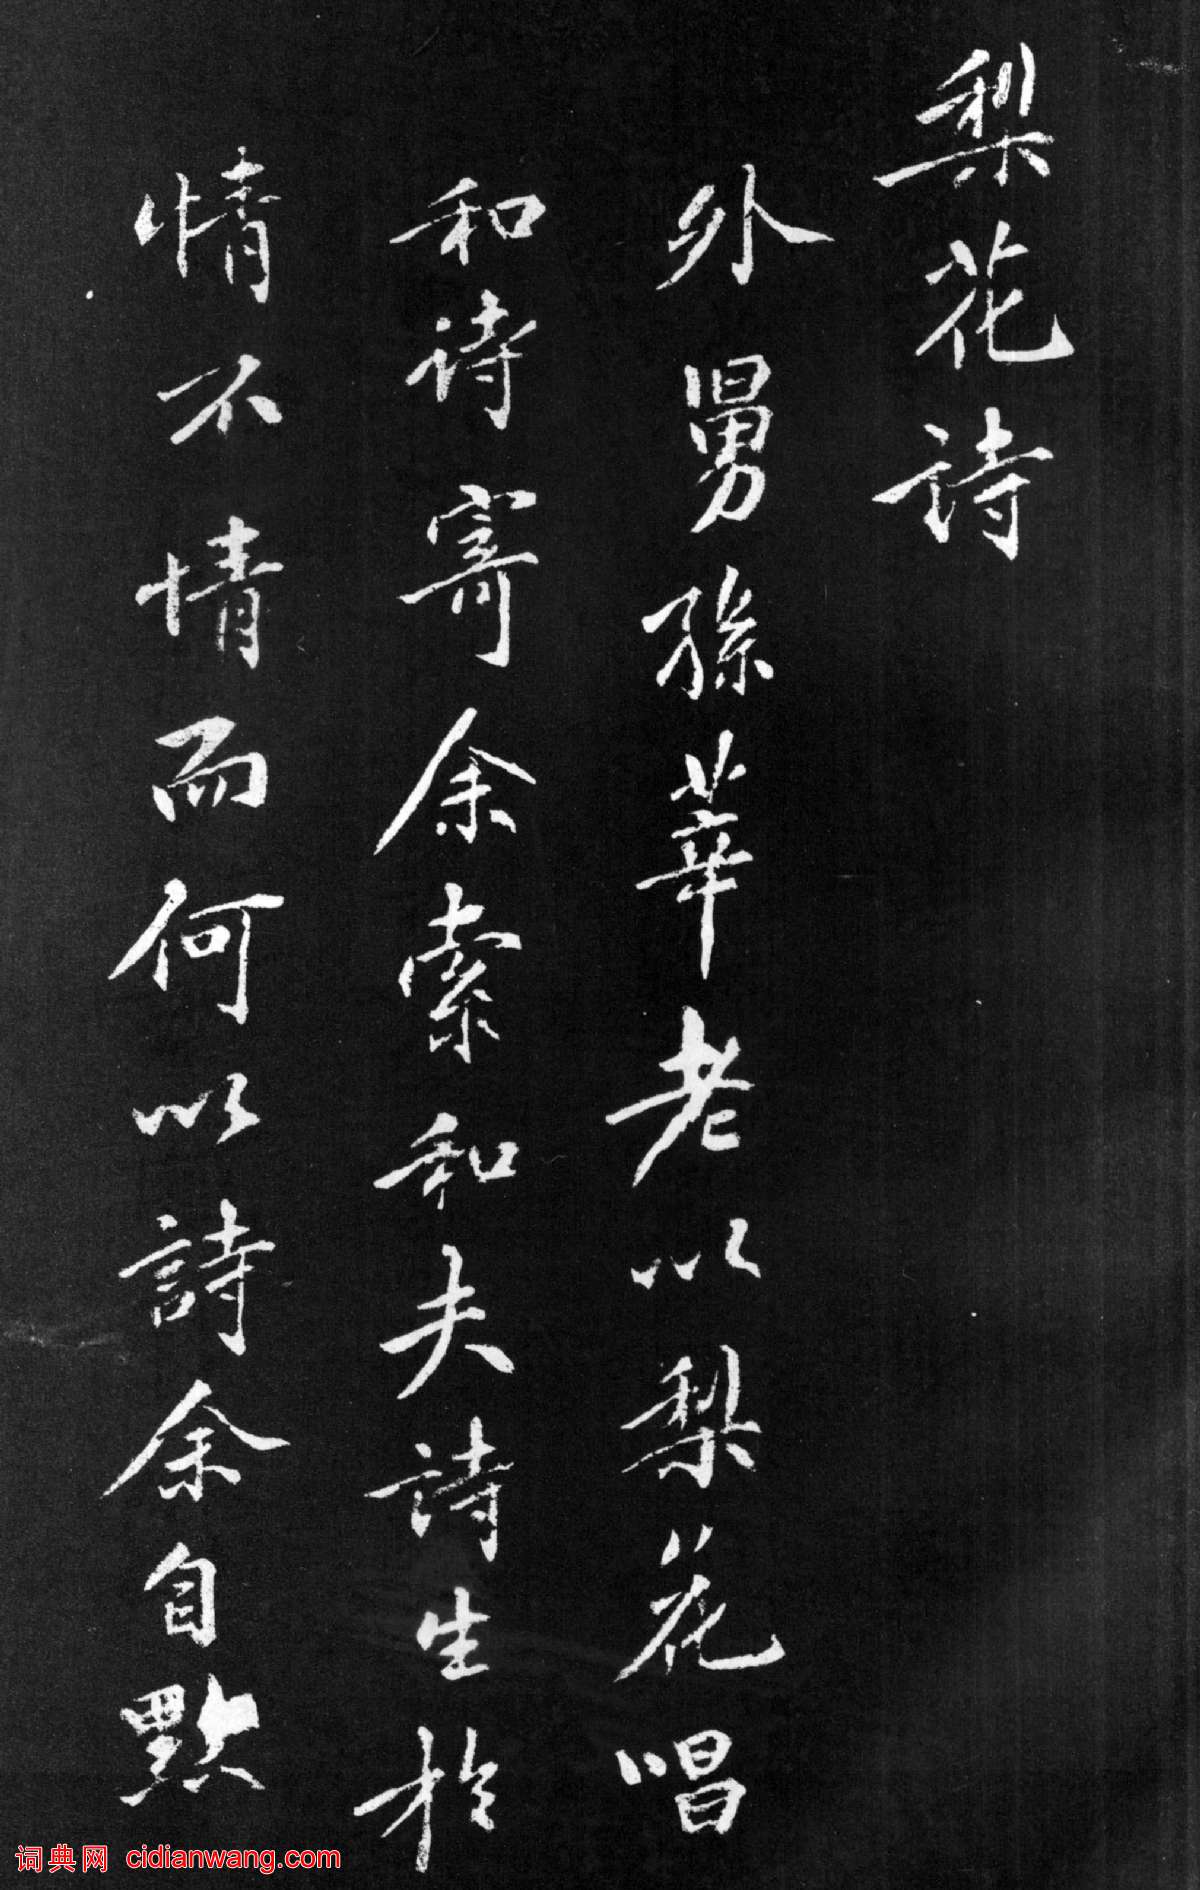 梨花詩
外舅孫莘老以梨花唱
和詩寄余索和夫詩生於
情不情而何以詩余自點
词典网 cidianwang.com